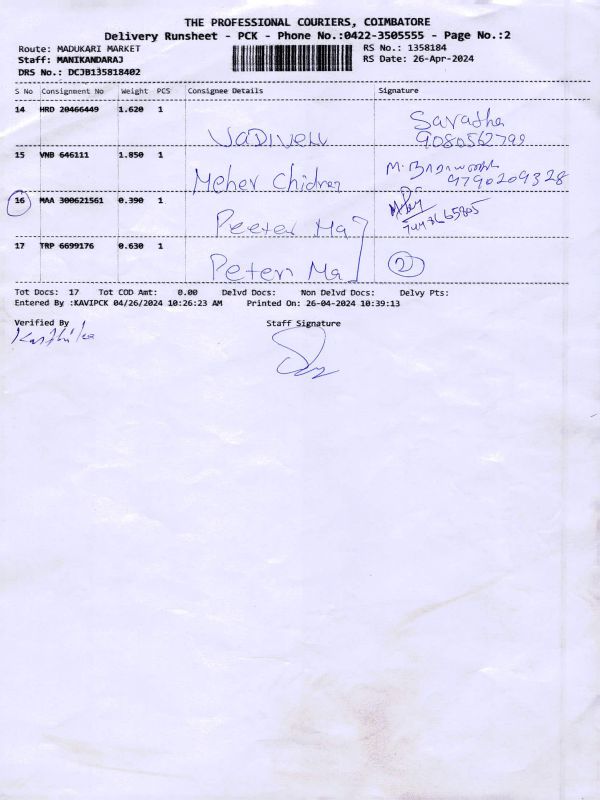 THE PROFESSIONAL COURIERS, COIMBATORE
Delivery Runsheet - PCK - Phone No.:0422-3505555 - Page No.:2
Route: MADUKARI MARKET
RS No.: 1358184
Staff: MANIKANDARAJ
RS Date: 26-Apr-2024
DRS No.: DCJB135818402
S No Consignment No Weight PCS Consignee Details Signature
14 HRD 20466449 1.620 1
VADIVELU Savatha
9080562799
15 VNB 646111 1.850 1
Meher 9790209328
16 MAA 300621561 0.390 1
Peeter Ma
17 TRP 6699176 0.630 1
Peter Ma 2
Tot Docs: 17 Tot COD Amt: 0.00 Delvd Docs: Non Delvd Docs: Delvy Pts:
Entered By :KAVIPCK 04/26/2024 10:26:23 AM Printed On: 26-04-2024 10:39:13
Verified By Staff Signature